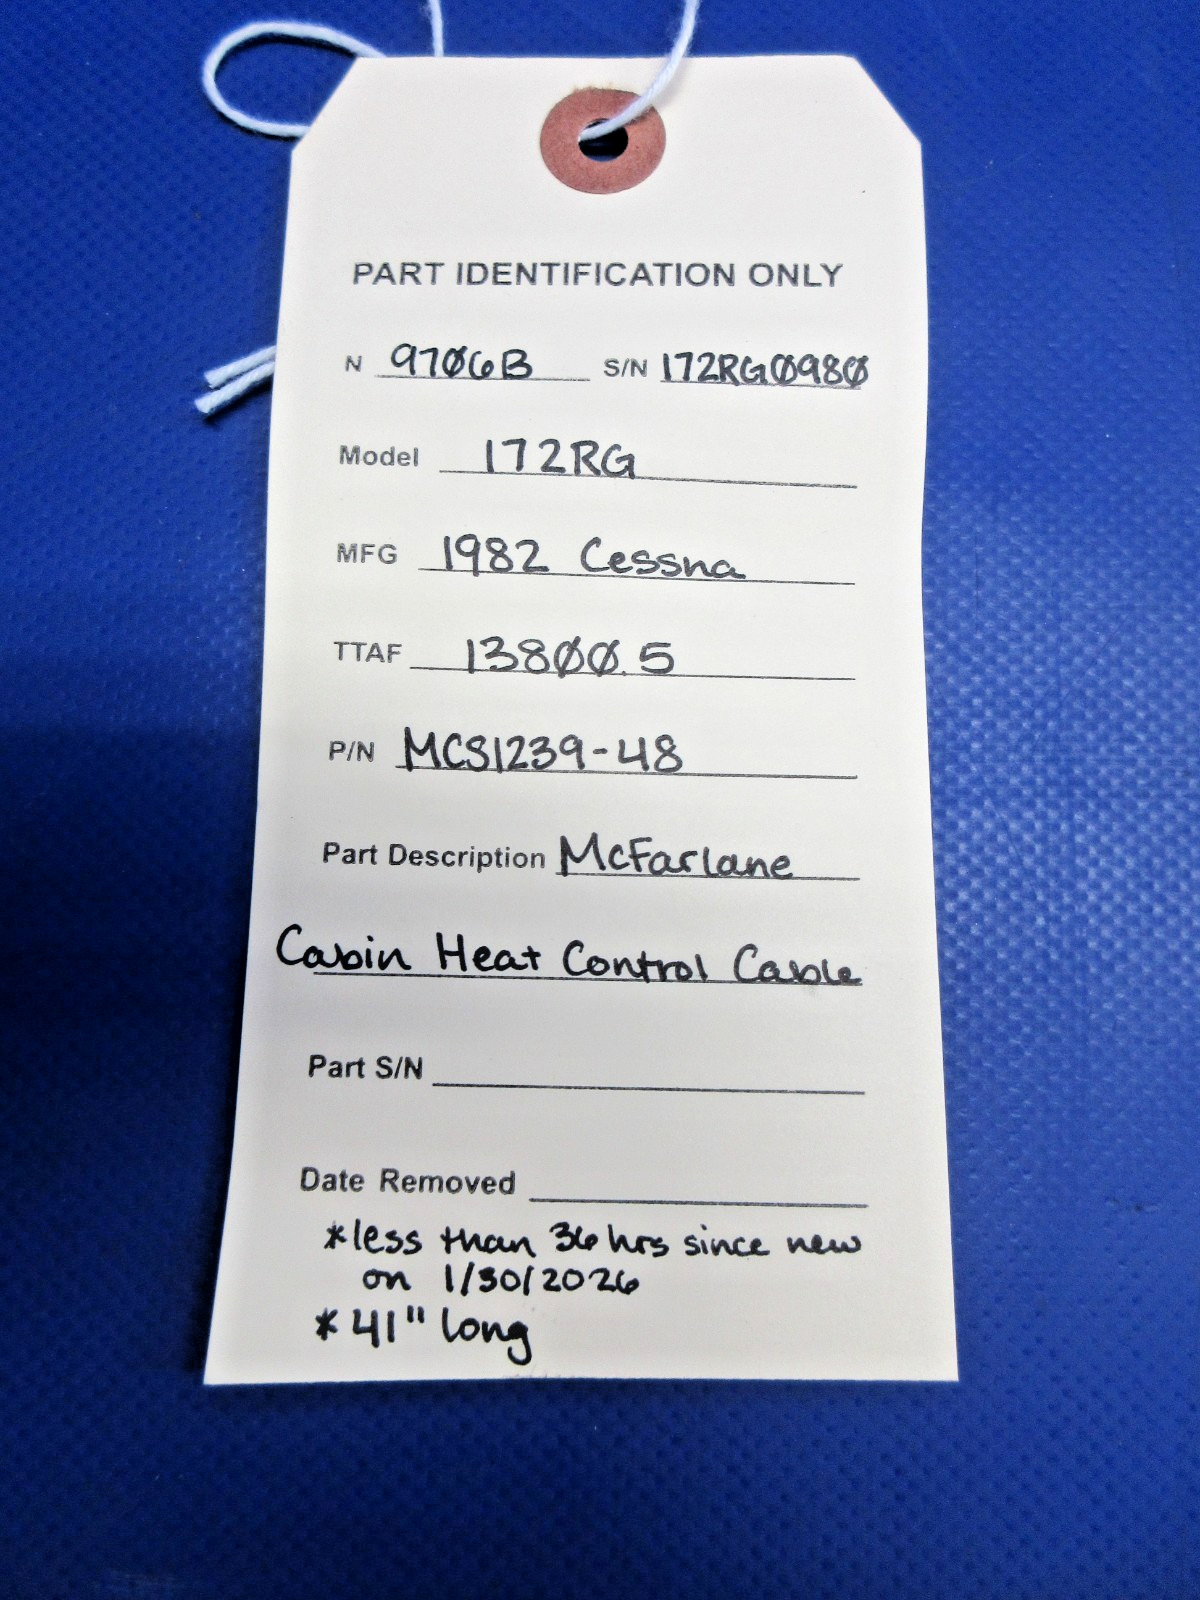 PART IDENTIFICATION ONLY
N 9706B S/N 172RG0980
Model 172RG
MFG 1982 Cessna
TTAF 13800.5
P/N MCS1239-48
Part Description McFarlane
Cabin Heat Control Cable
Part S/N
Date Removed
*less than 36 hrs since new
on 1/30/2026
*41" long